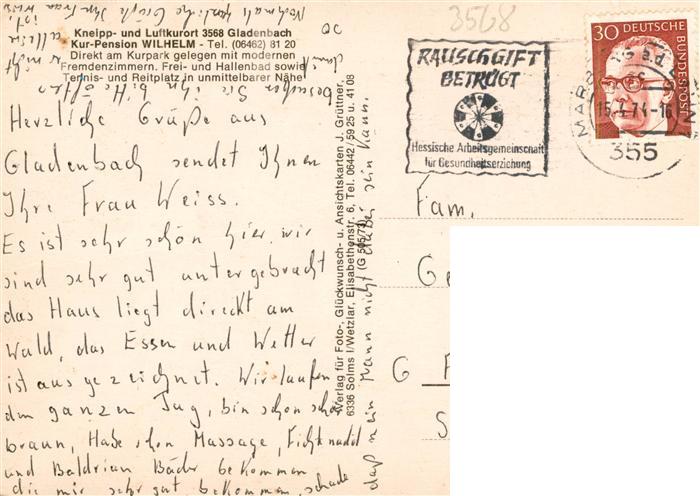 Kneipp- und Luftkurort 3568 Gladenbach
Kur-Pension WILHELM - Tel. (06462) 81 20
Direkt am Kurpark gelegen mit modernen
Fremdenzimmern. Frei- und Hallenbad sowie
Tennis- und Reitplatz in unmittelbarer Nähe
Herzliche Grüße aus
Gladenbach sendet Ihnen
Ihre Frau Weiss.
Es ist sehr schön hier, wir
sind sehr gut untergebracht
das Haus liegt direkt am
Wald, das Essen und Wetter
ist ausgezeichnet. Wir laufen
den ganzen Tag, bin schon schön
braun, Habe schon Massage, Fichtenadel
und Baldrian Bäder bekommen
die mir sehr gut bekommen, schade
daß mein Mann nicht dabei sein kann.
besuchen Sie ihn bitte öfters
damit er nicht
alleine ist.
Nochmals herzliche Grüße Ihre Frau Weiss
Verlag für Foto-, Glückwunsch- u. Ansichtskarten J. Grüttner,
6336 Solms I/Wetzlar, Elisabethenstr. 6, Tel. 06442/59 25 u. 41 08
QC
3568
RAUSCHGIFT
BETRÜGT
Hessische Arbeitsgemeinschaft
für Gesundheitserziehung
30 DEUTSCHE
BUNDESPOST
355
Fam.
G
S